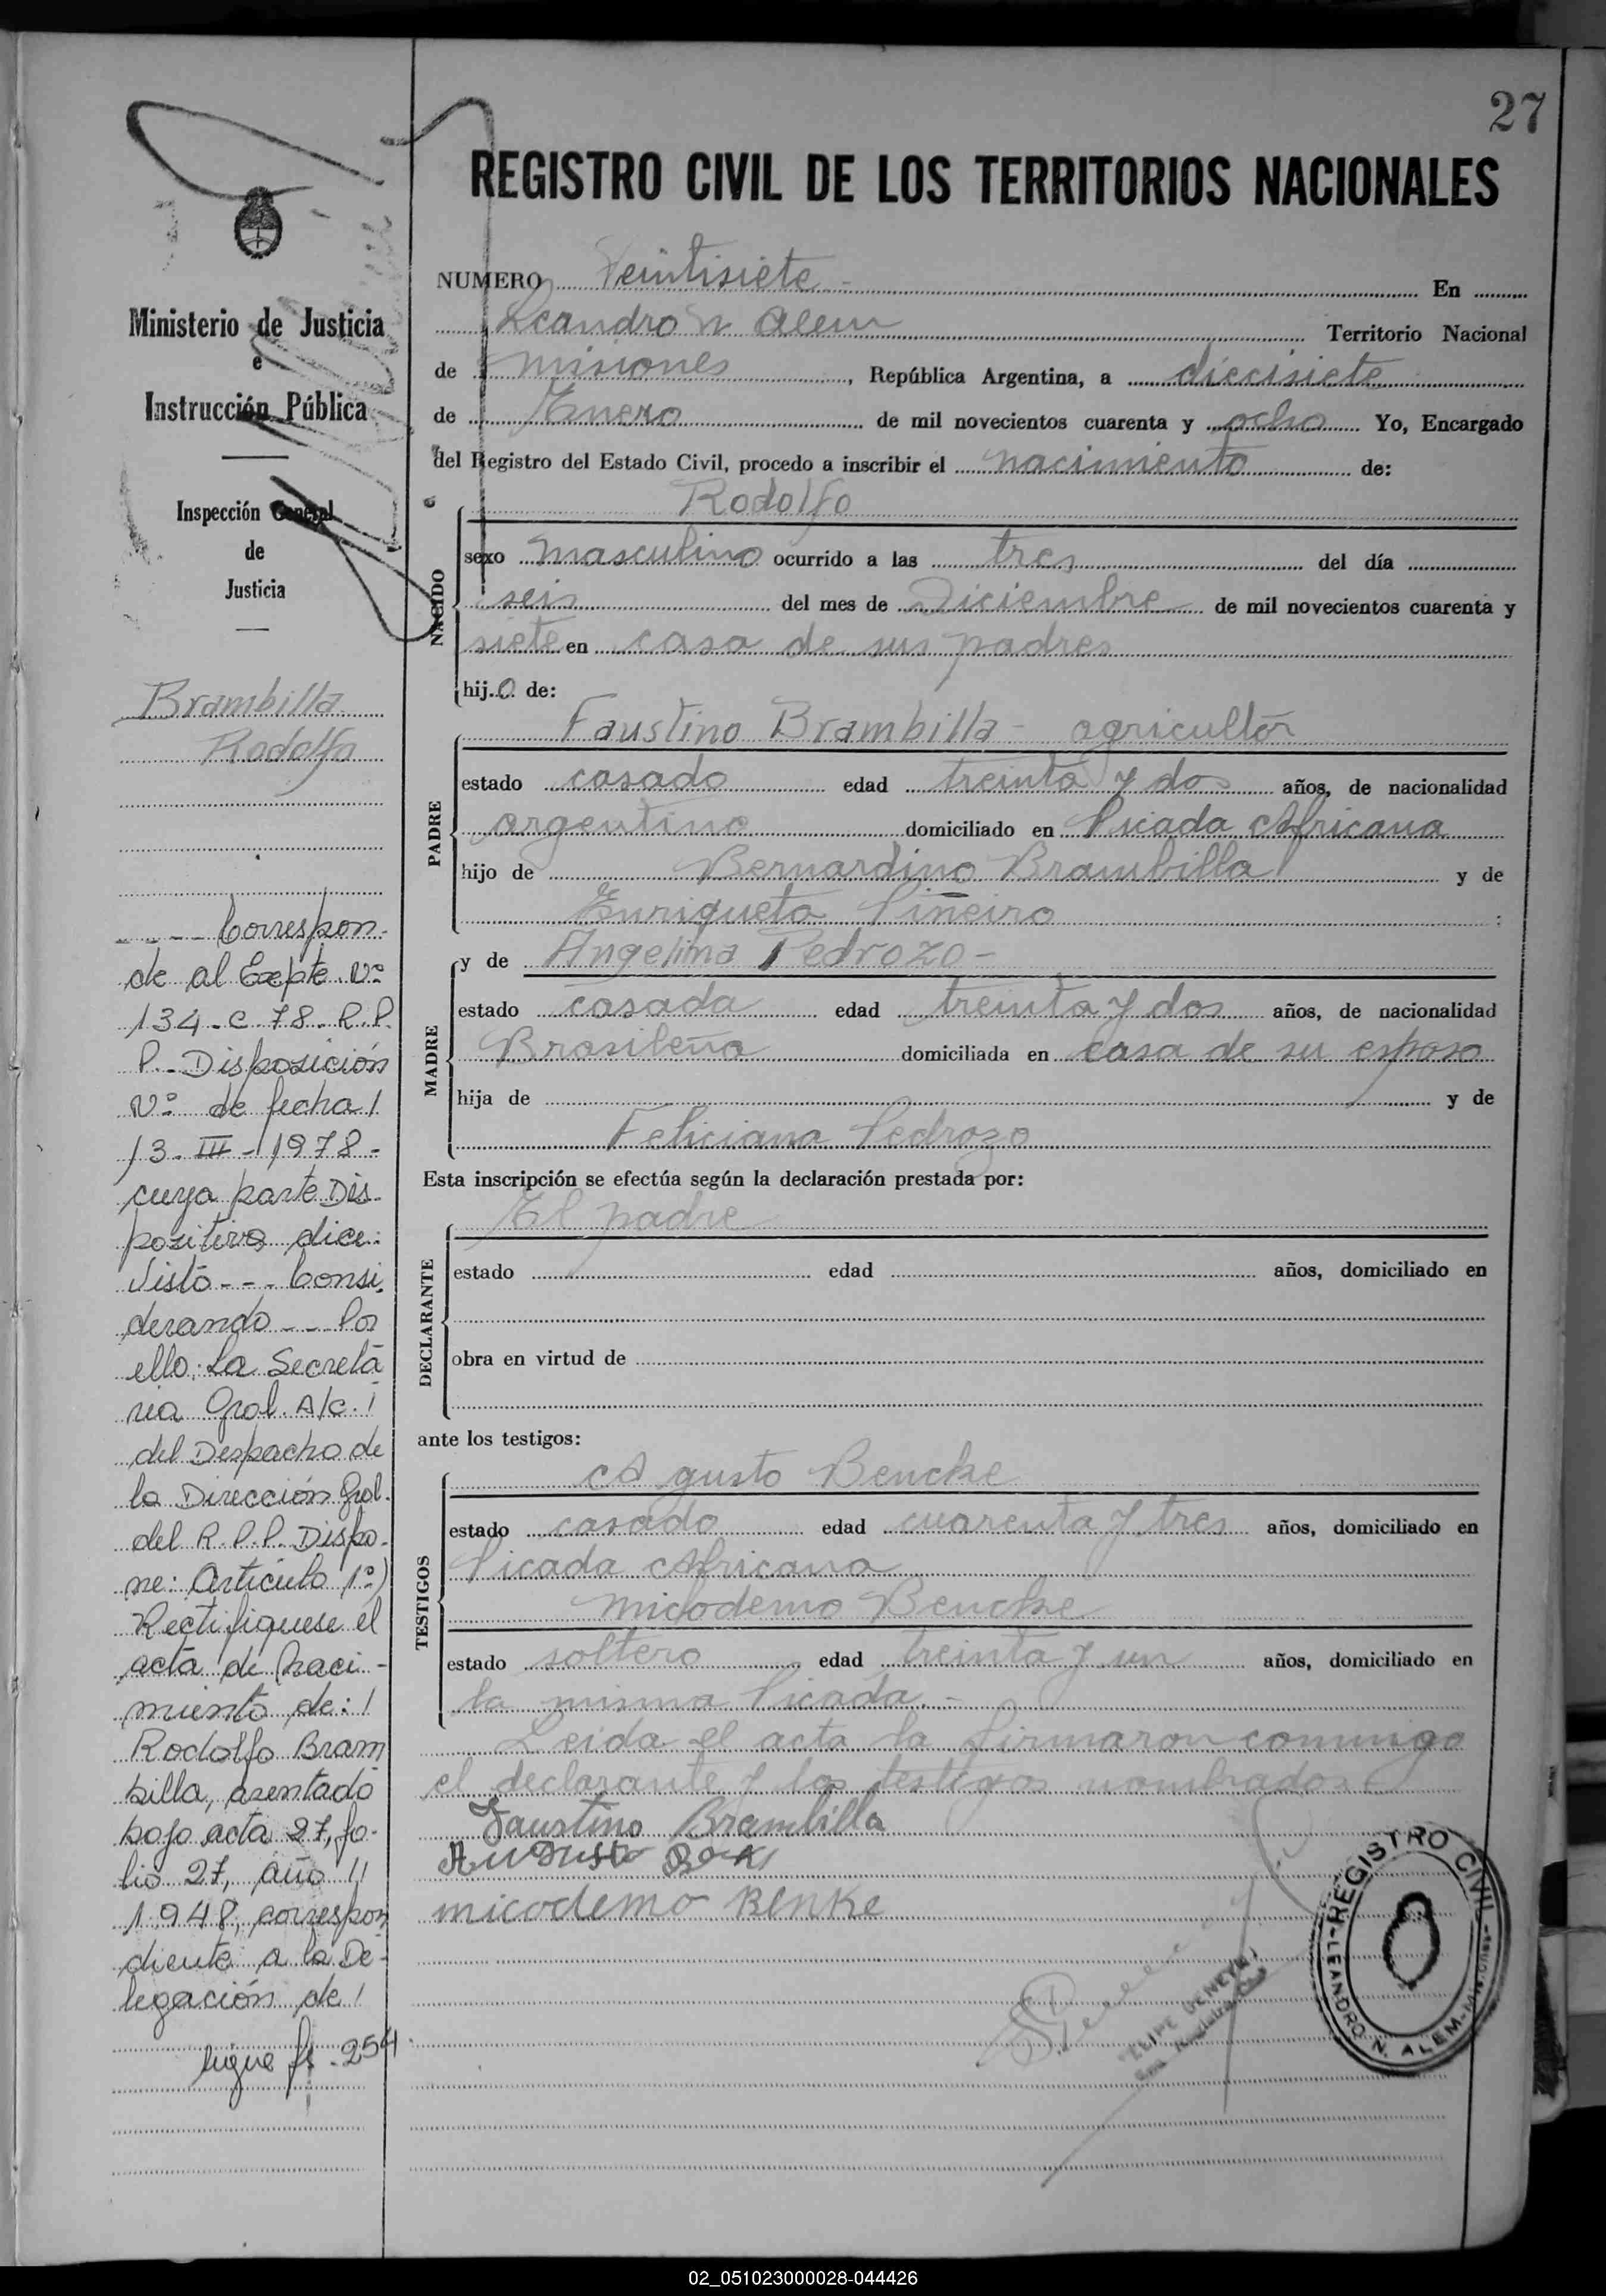 27
REGISTRO CIVIL DE LOS TERRITORIOS NACIONALES
Ministerio de Justicia
e
Instrucción Pública
Inspección General
de
Justicia
Brambilla
Rodolfo
---- Correspon-
de al Expte. Nº
134-C-78-R.P.
P.- Disposición
Nº de fecha/
13-III-1978-
cuya parte Dis-
positiva dice:
Visto--- Consi-
derando --- Por
ello: La Secreta
ria Gral. A/c. /
del Despacho de
la Dirección Gral.
del R.P.P. Dispo-
ne: Artículo 1º)
Rectifíquese el
acta de Naci-
miento de: /
Rodolfo Bram
billa, asentado
bajo acta 27, fo-
lio 27, año //
1948, correspon
diente a la De-
legación de /
sigue fs. 254
NUMERO Veintisiete - En
Leandro N Alem Territorio Nacional
de Misiones, República Argentina, a diecisiete
de Enero de mil novecientos cuarenta y ocho Yo, Encargado
del Registro del Estado Civil, procedo a inscribir el nacimiento de:
NACIDO
Rodolfo
sexo masculino ocurrido a las tres del día
seis del mes de Diciembre de mil novecientos cuarenta y
siete en casa de sus padres
hijo de:
PADRE
Faustino Brambilla - agricultor
estado casado edad treinta y dos años, de nacionalidad
argentino domiciliado en Picada Africana
hijo de Bernardino Brambilla y de
Enriqueta Piñeiro
MADRE
y de Angelina Pedrozo -
estado casada edad treinta y dos años, de nacionalidad
Brasileña domiciliada en casa de su esposo
hija de y de
Feliciana Pedrozo
Esta inscripción se efectúa según la declaración prestada por:
DECLARANTE
El padre
estado edad años, domiciliado en
obra en virtud de
ante los testigos:
TESTIGOS
Agusto Bencke
estado casado edad cuarenta y tres años, domiciliado en
Picada Africana
Micodemo Bencke
estado soltero edad treinta y un años, domiciliado en
la misma Picada.-
Leida el acta la firmaron conmigo
el declarante y los testigos nombrados
Faustino Brambilla
August
micodemo Renke
FELIPE
REGISTRO CIVIL - LEANDRO N. ALEM - Misiones
02_051023000028-044426